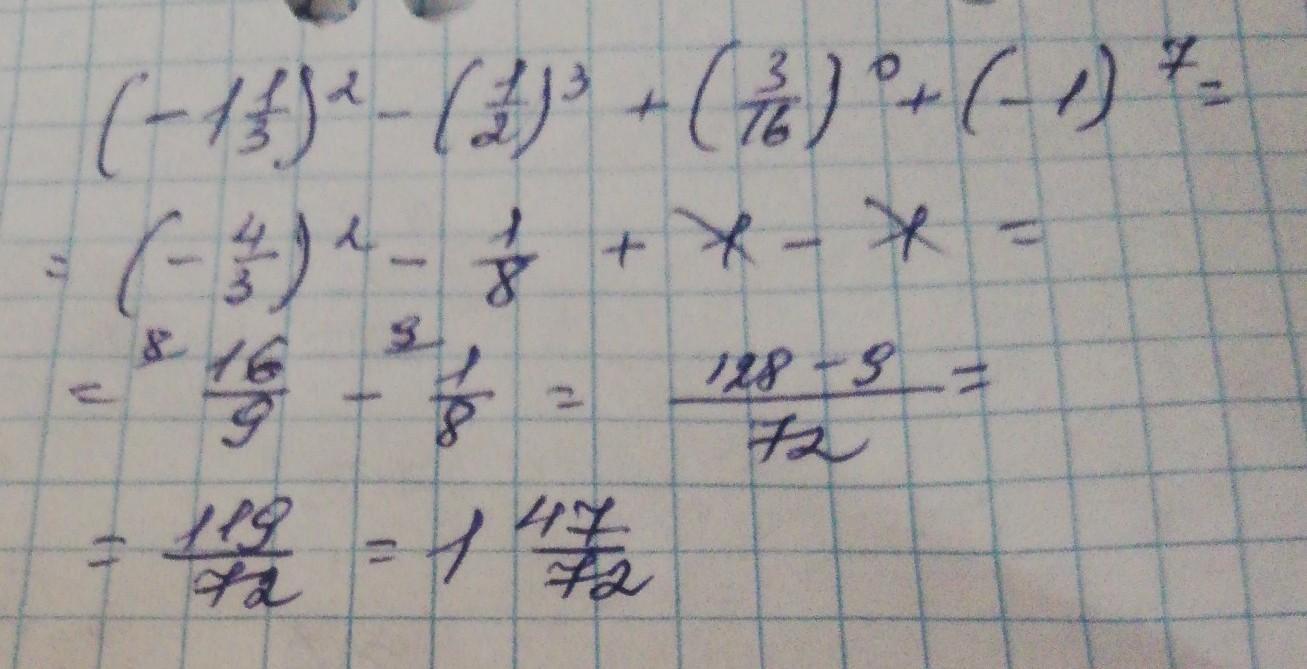 (-1 1/3)² - (1/2)³ + (3/16)⁰ + (-1)⁷ =
= (-4/3)² - 1/8 + 1 - 1 =
= ⁸ 16/9 - ⁹ 1/8 = (128 - 9)/72 =
= 119/72 = 1 47/72